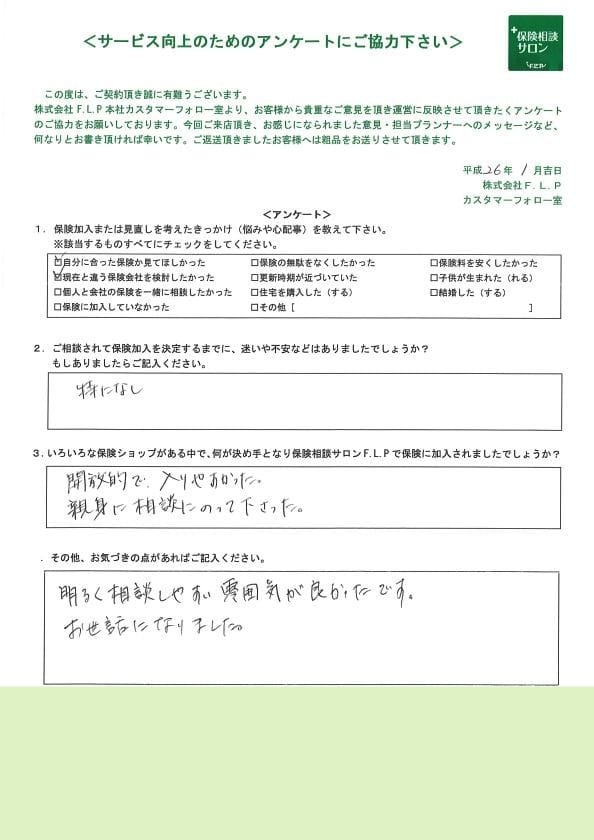 ＜サービス向上のためのアンケートにご協力下さい＞
+保険相談
サロン
F.L.P
この度は、ご契約頂き誠に有難うございます。
株式会社F.L.P本社カスタマーフォロー室より、お客様から貴重なご意見を頂き運営に反映させて頂きたくアンケート
のご協力をお願いしております。今回ご来店頂き、お感じになられました意見・担当プランナーへのメッセージなど、
何なりとお書き頂ければ幸いです。ご返送頂きましたお客様へは粗品をお送りさせて頂きます。
平成26年 1月吉日
株式会社F.L.P
カスタマーフォロー室
＜アンケート＞
1．保険加入または見直しを考えたきっかけ（悩みや心配事）を教えて下さい。
※該当するものすべてにチェックをしてください。
☑自分に合った保険か見てほしかった □保険の無駄をなくしたかった □保険料を安くしたかった
☑現在と違う保険会社を検討したかった □更新時期が近づいていた □子供が生まれた（れる）
□個人と会社の保険を一緒に相談したかった □住宅を購入した（する） □結婚した（する）
□保険に加入していなかった □その他 [ ]
2．ご相談されて保険加入を決定するまでに、迷いや不安などはありましたでしょうか？
もしありましたらご記入ください。
特になし
3．いろいろな保険ショップがある中で、何が決め手となり保険相談サロンF.L.Pで保険に加入されましたでしょうか？
開放的で、入りやすかった。
親身に相談にのって下さった。
．その他、お気づきの点があればご記入ください。
明るく相談しやすい雰囲気が良かったです。
お世話になりました。